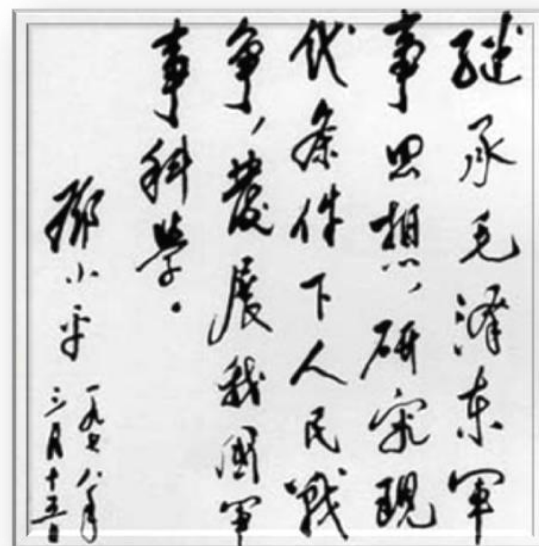 继承毛泽东军
事思想，研究现
代条件下人民战
争，发展我国军
事科学。
邓小平
一九七八年
三月十五日